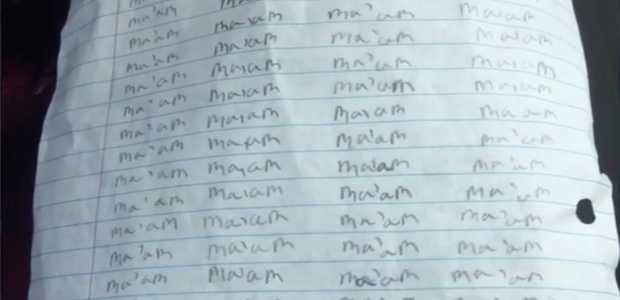 ma'am
ma'am ma'am ma'am ma'am
ma'am ma'am ma'am ma'am
ma'am ma'am ma'am ma'am
ma'am ma'am ma'am ma'am
ma'am ma'am ma'am ma'am
ma'am ma'am ma'am ma'am
ma'am ma'am ma'am ma'am
ma'am ma'am ma'am ma'am
ma'am ma'am ma'am ma'am
ma'am ma'am ma'am ma'am
ma'am ma'am ma'am ma'am